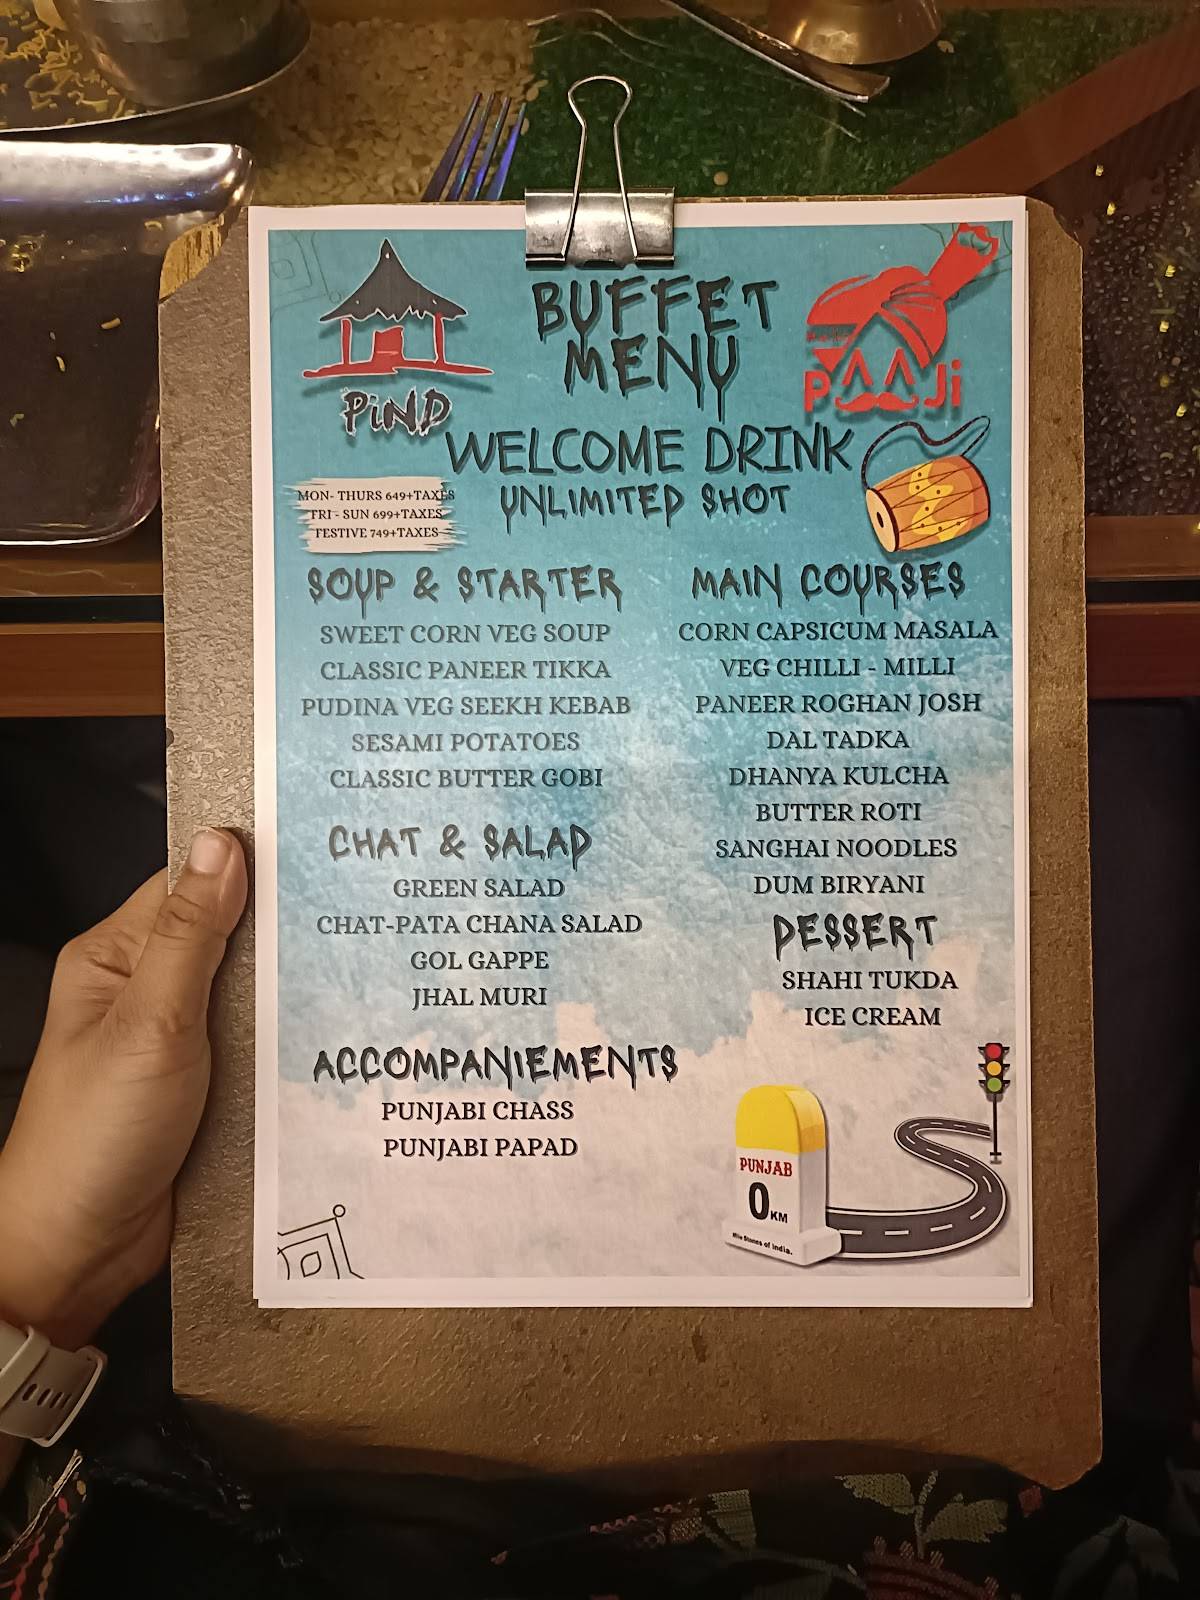 BUFFET
MENU
PiND
PAAJi
WELCOME DRINK
UNLIMITED SHOT
MON- THURS 649+TAXES
FRI - SUN 699+TAXES
FESTIVE 749+TAXES
SOUP & STARTER
SWEET CORN VEG SOUP
CLASSIC PANEER TIKKA
PUDINA VEG SEEKH KEBAB
SESAMI POTATOES
CLASSIC BUTTER GOBI
CHAT & SALAD
GREEN SALAD
CHAT-PATA CHANA SALAD
GOL GAPPE
JHAL MURI
ACCOMPANIEMENTS
PUNJABI CHASS
PUNJABI PAPAD
MAIN COURSES
CORN CAPSICUM MASALA
VEG CHILLI - MILLI
PANEER ROGHAN JOSH
DAL TADKA
DHANYA KULCHA
BUTTER ROTI
SANGHAI NOODLES
DUM BIRYANI
DESSERT
SHAHI TUKDA
ICE CREAM
PUNJAB
0 KM
Mile Stones of India.